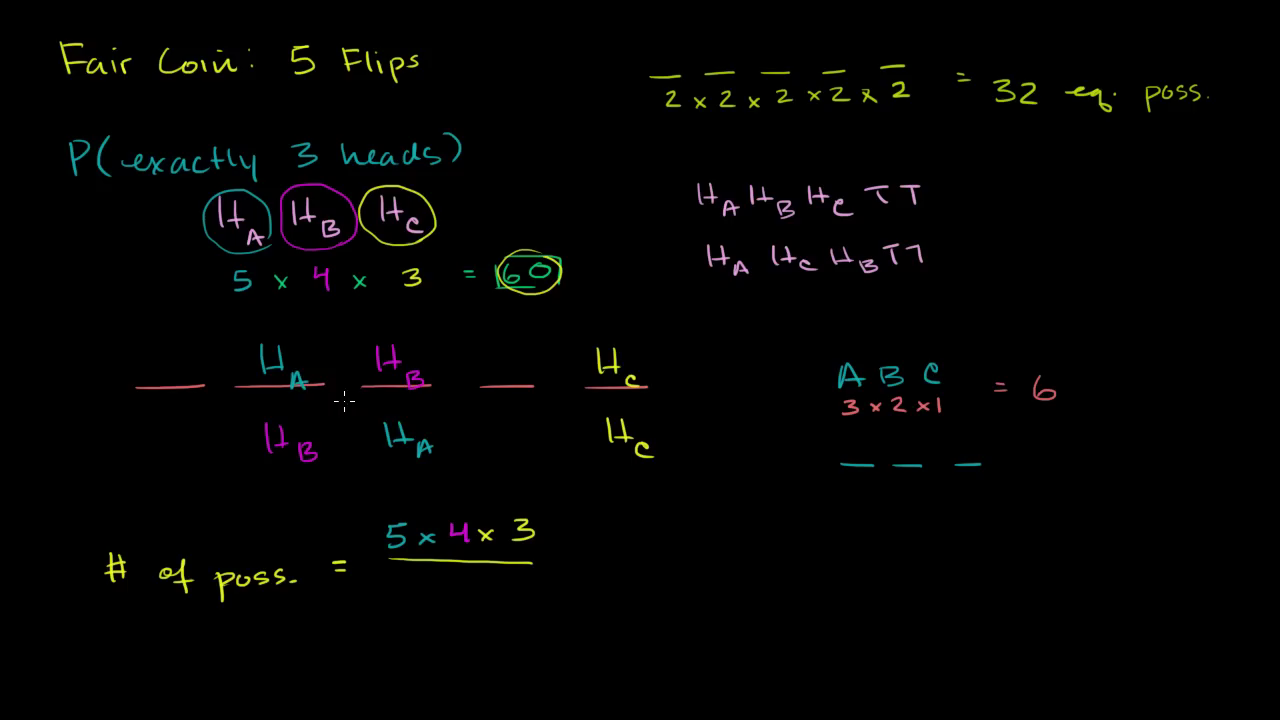 Fair Coin: 5 Flips
2 x 2 x 2 x 2 x 2 = 32 eq. poss.
P(exactly 3 heads)
H_A H_B H_C
5 x 4 x 3 = 60
H_A H_B H_C T T
H_A H_C H_B T T
H_A H_B H_C
H_B H_A H_C
A B C = 6
3 x 2 x 1
# of poss. = 5 x 4 x 3